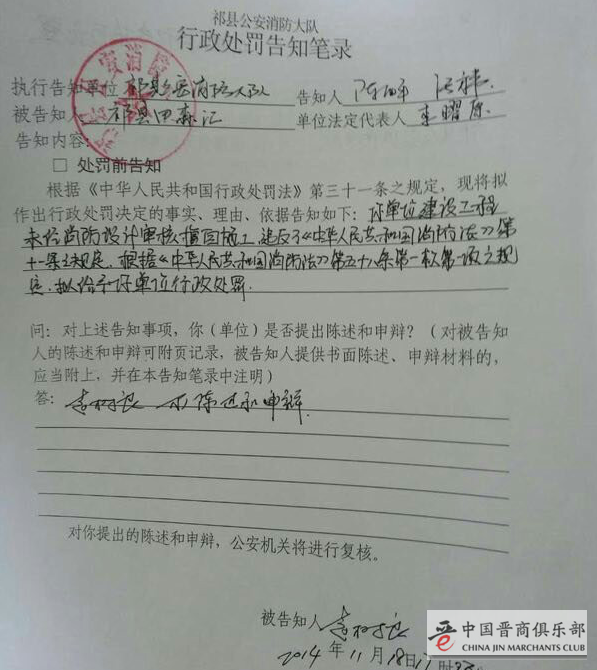 祁县公安消防大队
行政处罚告知笔录
执行告知单位 祁县公安消防大队 告知人
被告知人 祁县田森汇 单位法定代表人 李曜原
告知内容:
□ 处罚前告知
根据《中华人民共和国行政处罚法》第三十一条之规定,现将拟
作出行政处罚决定的事实、理由、依据告知如下:你单位建设工程
未经消防设计审核擅自施工,违反了《中华人民共和国消防法》第
十一条之规定,根据《中华人民共和国消防法》第五十八条第一款第一项之规
定,拟给予你单位行政处罚.
问:对上述告知事项,你(单位)是否提出陈述和申辩?(对被告知
人的陈述和申辩可附页记录,被告知人提供书面陈述、申辩材料的,
应当附上,并在本告知笔录中注明)
答: 不陈述和申辩.
对你提出的陈述和申辩,公安机关将进行复核。
被告知人
2014年11月18日
晋 中国晋商俱乐部
CHINA JIN MARCHANTS CLUB